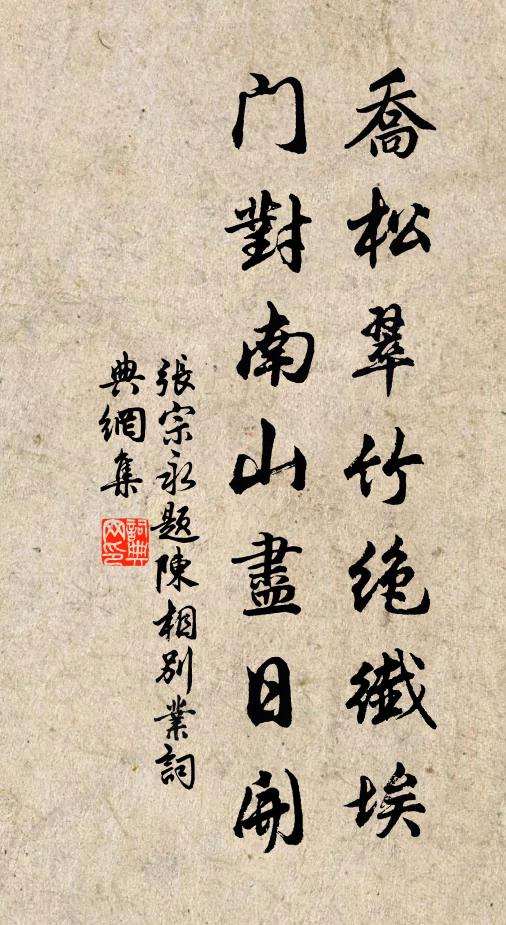 喬松翠竹絶纖埃
门對南山盡日開
張宗永题陳相别業詞
典網集
詞典
网印